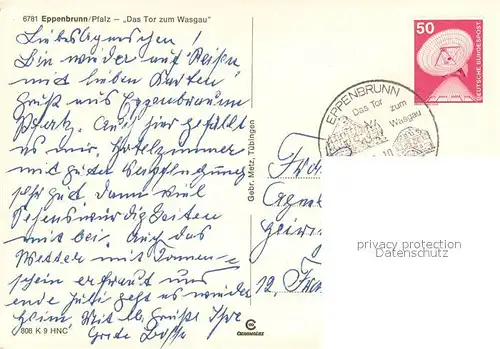 6781 Eppenbrunn/Pfalz – „Das Tor zum Wasgau"
Liebes Agneschen!
Bin wieder auf Reisen
mit lieben
Gruß aus Eppenbrunn
Pfalz. Auch hier gefällt
es mir. Hotelzimmer
mit guter Verpflegung
sehr gut. Dann viel
Sehenswürdigkeiten
mit bei. Auch das
Wetter mit Sonnen-
schein erfreut uns
ende Juli geht es wieder
heim. Mit lb. Grüße Ihre
Grete
808 K 9 HNC
Gebr. Metz, Tübingen
50
DEUTSCHE BUNDESPOST
EPPENBRUNN
Das Tor zum
Wasgau
privacy protection
Datenschutz